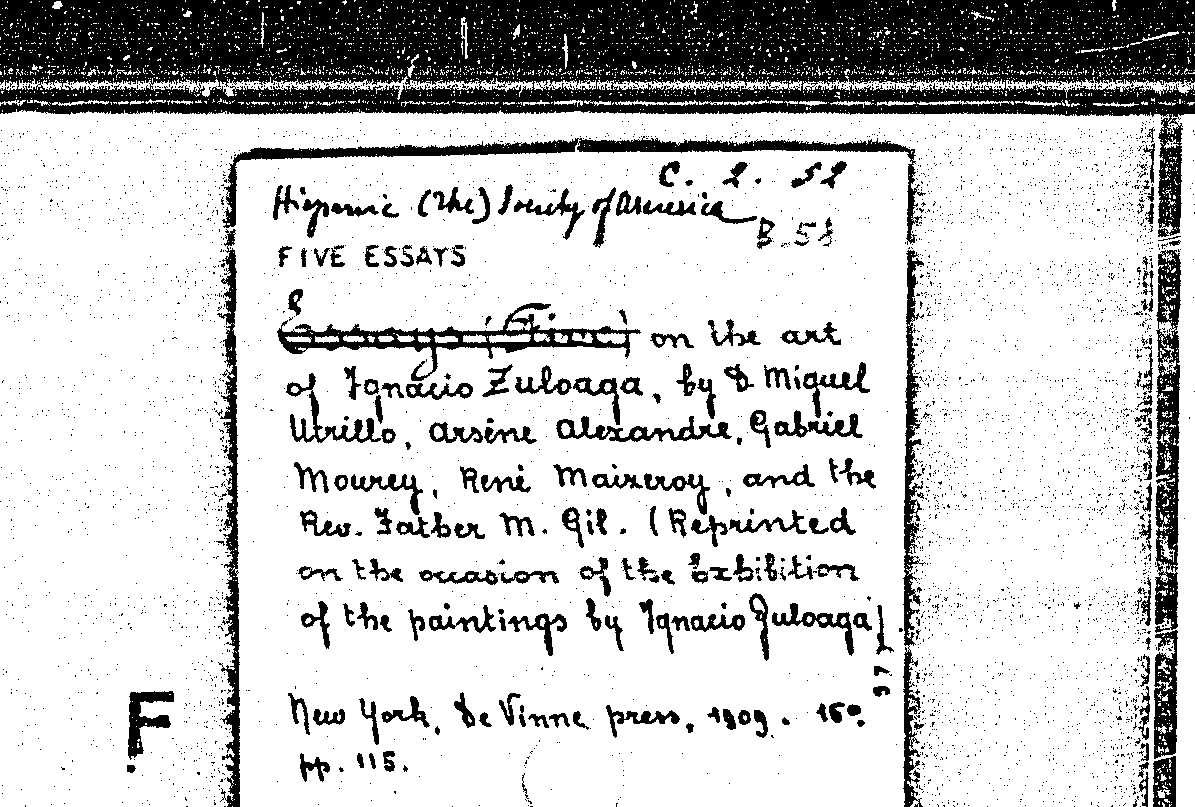 C. 2. 52
Hispanic (The) Society of America
B. 58
FIVE ESSAYS
Essays (Five) on the art
of Ignacio Zuloaga, by D Miguel
Utrillo, Arsène Alexandre, Gabriel
Mourey, René Maizeroy, and the
Rev. Father M. Gil. (Reprinted
on the occasion of the Exhibition
of the paintings by Ignacio Zuloaga)
97
New York, De Vinne press, 1909. 16º.
pp. 115.
F.